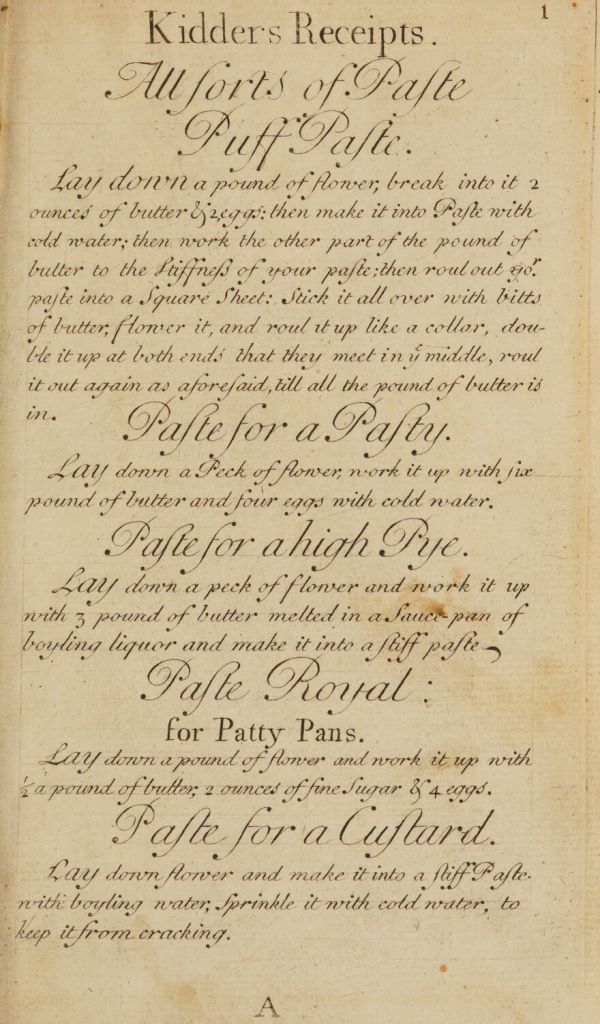 1
Kidders Receipts.
All sorts of Paste
Puff Paste.
Lay down a pound of flower, break into it 2
ounces of butter & 2 eggs: then make it into Paste with
cold water; then work the other part of the pound of
butter to the Stiffneſs of your paste; then roul out yoʳ.
paste into a Square Sheet: Stick it all over with bitts
of butter, flower it, and roul it up like a collar, dou-
ble it up at both ends that they meet in yᵉ middle, roul
it out again as aforeſaid, till all the pound of butter is
in.
Paſte for a Paſty.
Lay down a Peck of flower, work it up with ſix
pound of butter and four eggs with cold water.
Paſte for a high Pye.
Lay down a peck of flower and work it up
with 3 pound of butter melted in a Sauce-pan of
boyling liquor and make it into a ſtiff paſte
Paſte Royal:
for Patty Pans.
Lay down a pound of flower and work it up with
½ a pound of butter, 2 ounces of fine Sugar & 4 eggs.
Paſte for a Cuſtard.
Lay down flower and make it into a ſtiff Paſte.
with boyling water, Sprinkle it with cold water, to
keep it from cracking.
A